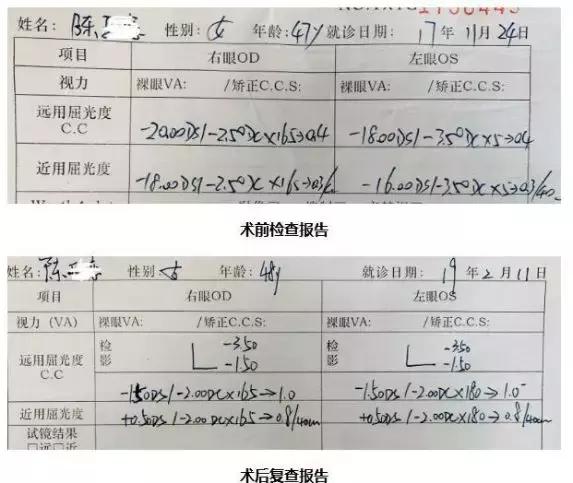 姓名: 陈 性别: 女 年龄: 47y 就诊日期: 17 年 11 月 24 日
项目 右眼OD 左眼OS
视力 裸眼VA: /矫正C.C.S: 裸眼VA: /矫正C.C.S:
远用屈光度 C.C -20.00DS/-2.50DC×165→0.4 -18.00DS/-3.50DC×5→0.4
近用屈光度 -18.00DS/-2.50DC×165→0.3/ -16.00DS/-3.50DC×5→0.3/40
术前检查报告
姓名: 陈 性别 女 年龄: 48y 就诊日期: 19 年 2 月 11 日
项目 右眼OD 左眼OS
视力 (VA) 裸眼VA: /矫正C.C.S: 裸眼VA: /矫正C.C.S:
远用屈光度 C.C 检影 -3.50 -1.50 检影 -3.50 -1.50
-1.50DS/-2.00DC×165→1.0 -1.50DS/-2.00DC×180→1.0⁻
近用屈光度 +0.50DS/-2.00DC×165→0.8/40cm +0.50DS/-2.00DC×180→0.8/40cm
试镜结果
□远□近
术后复查报告